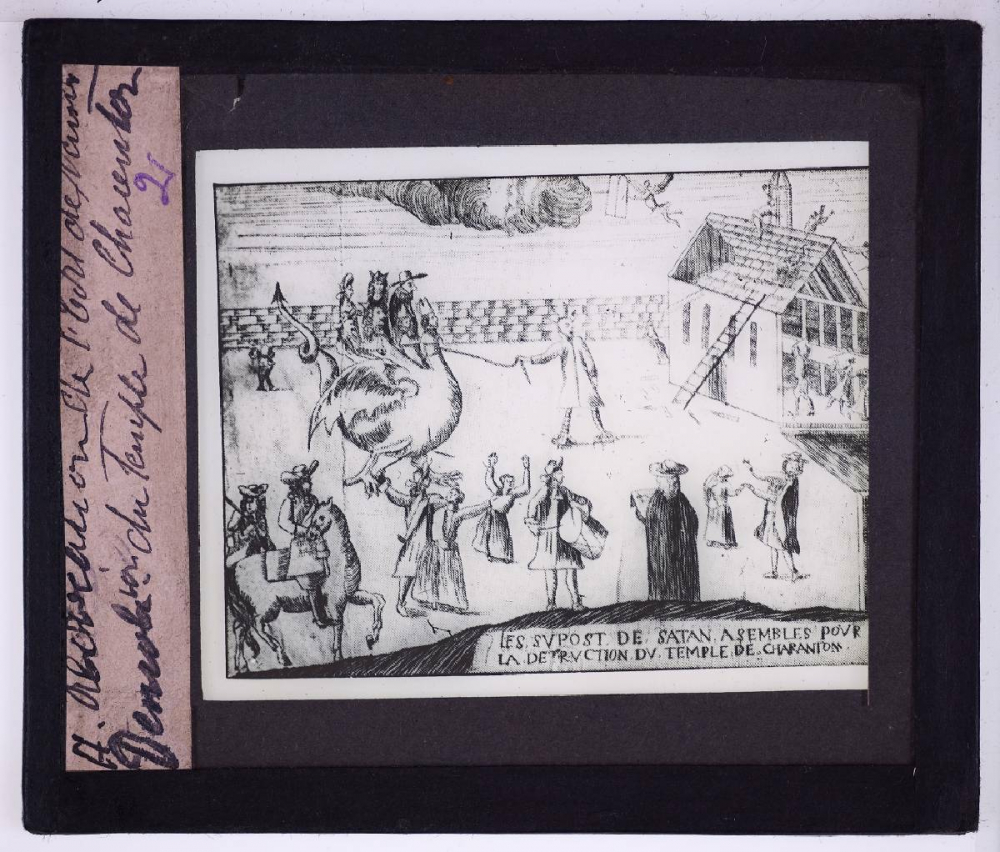 A. Révocation de l'Edit de Nantes
Démolition du Temple de Charenton
21
LES SVPOST DE SATAN ASEMBLES POVR
LA DETRVCTION DV TEMPLE DE CHARANTON